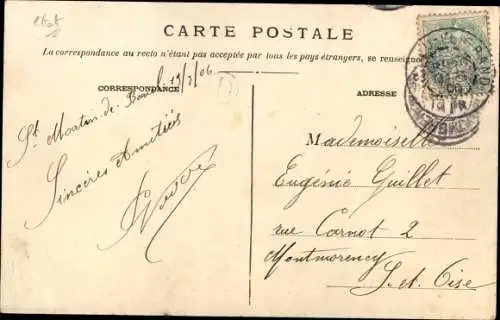 CARTE POSTALE
La correspondance au recto n'étant pas acceptée par tous les pays étrangers, se renseigner
CORRESPONDANCE
ADRESSE
St Martin-de- 19/3/06
Sincères Amitiés
Mademoiselle
Eugénie Guillet
rue Carnot 2
Montmorency
S. et. Oise